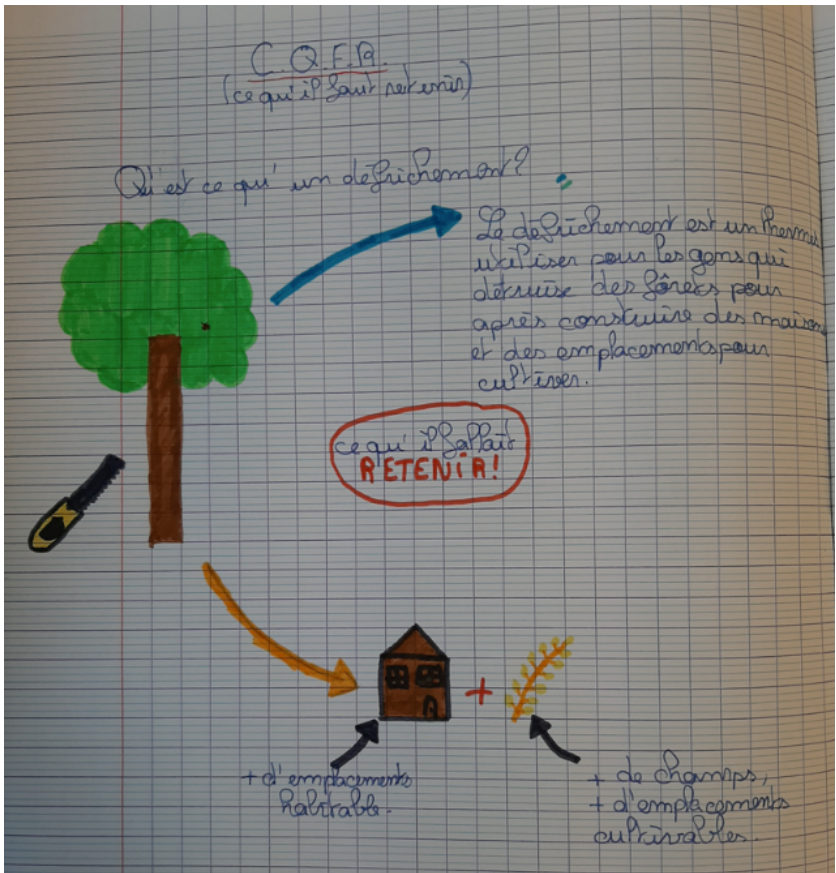 C.Q.F.R.
(ce qu'il faut retenir)
Qu'est ce qu'un défrichement?
Le défrichement est un thermes
utiliser pour les gens qui
détruise des fôrets pour
après construire des maisons
et des emplacements pour
cultiver.
ce qu'il fallait
RETENIR!
+
+ d'emplacements
habitable.
+ de champs,
+ d'emplacements
cultivables.